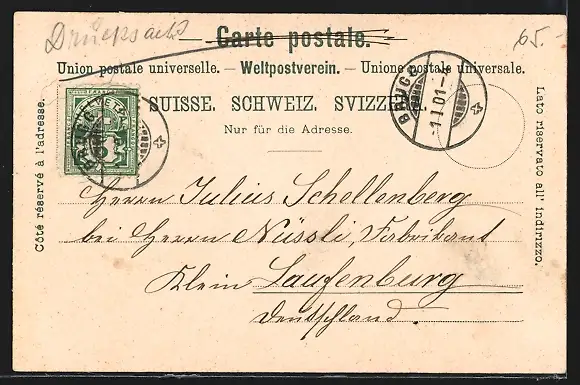 Drucksache
65.-
Carte postale.
Union postale universelle. — Weltpostverein. — Unione postale universale.
SUISSE. SCHWEIZ. SVIZZERA.
Nur für die Adresse.
Côté réservé à l'adresse.
Lato riservato all' indirizzo.
BRUGG
1.I.01-4
Herrn Julius Schellenberg
bei Herrn Nüssli, Fabrikant
Klein Laufenburg
Deutschland.